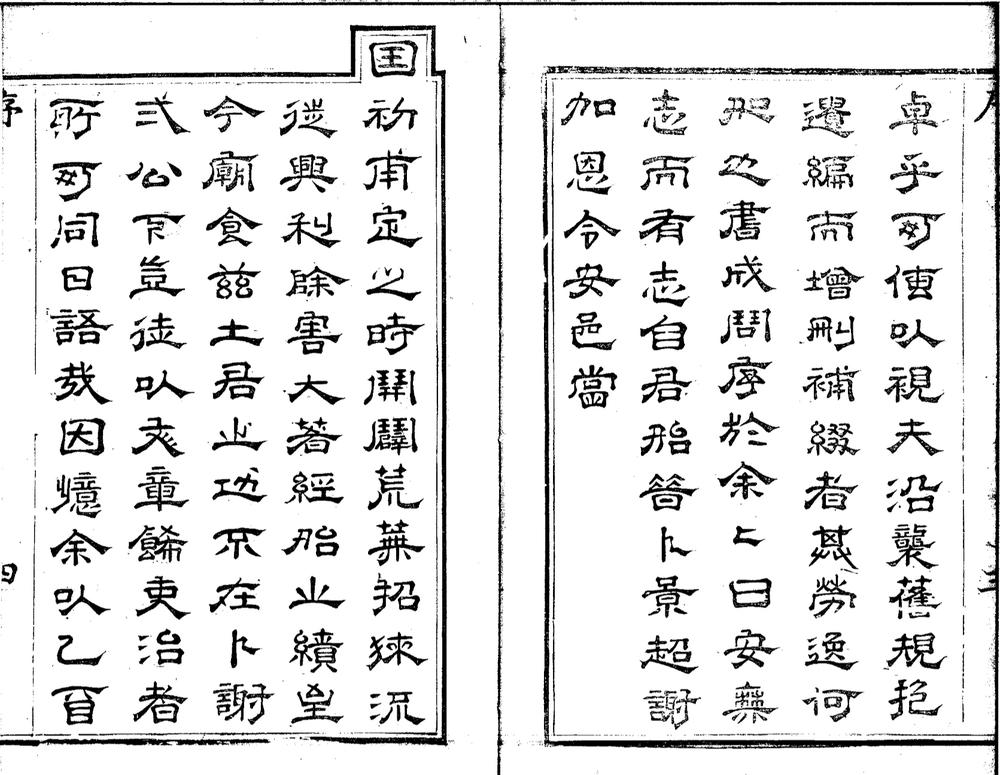 序
三
卓乎可傳以視夫沿襲舊規抱
遺編而增刪補綴者其勞逸何
如也書成問序於余〻曰安無
志而有志自君始昔卜景超謝
加恩令安邑當
囯
初甫定之時開闢荒蕪招徠流
徙興利除害大著經始之績至
今廟食茲土君之功不在卜謝
弍公下豈徒以文章餙吏治者
所可同日語哉因憶余以乙酉
序
四